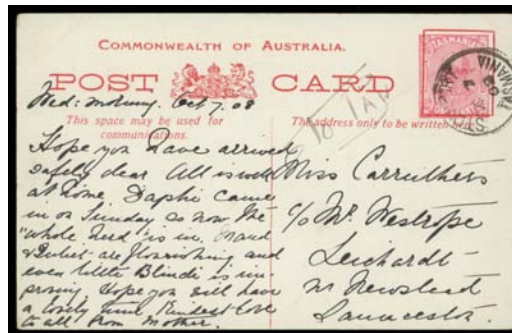 COMMONWEALTH OF AUSTRALIA.
POST CARD
TASMANIA
ONE PENNY
Wed: morning. Oct 7. 08
This space may be used for
communications.
The address only to be written
Hope you have arrived
safely dear All is well
at home. Daphie came
in on Sunday so now the
"whole herd" is in.
Juliet are flourishing and
even little Blindie is im-
proving Hope you will have
a lovely time Kindest love
to all from Mother.
Miss Carruthers
c/o Mr. Westrope
Leichardt
nr Newstead
Launceston.